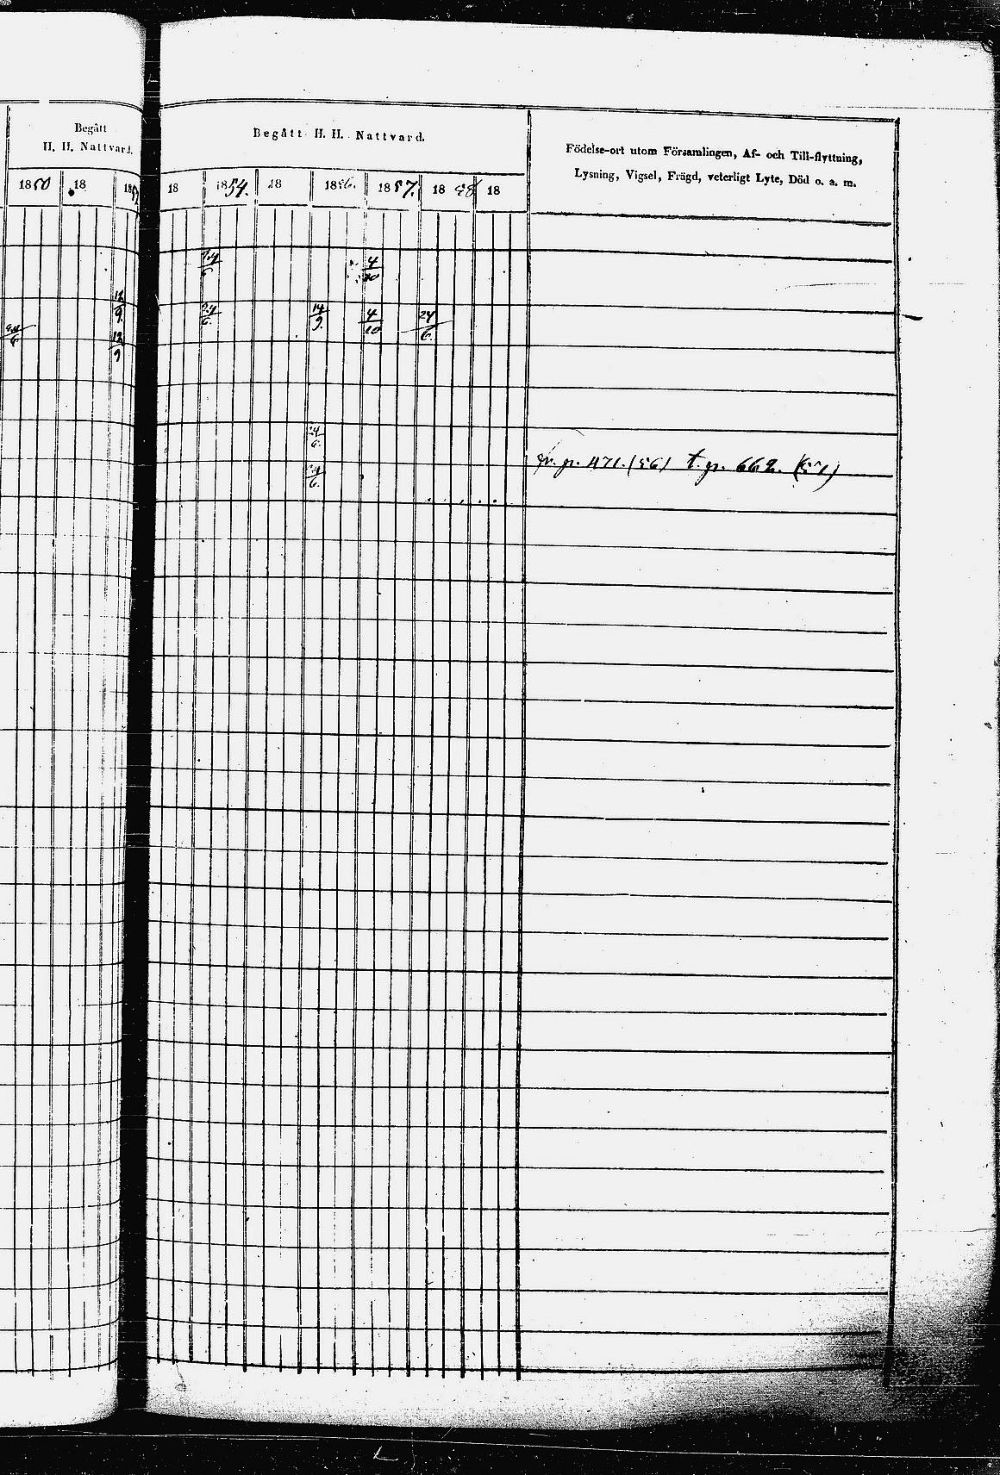 Begått
H. H. Nattvard.
1850 18 18
Begått H. H. Nattvard.
18 1854. 18 1856. 1857. 1858 18
Födelse-ort utom Församlingen, Af- och Till-flyttning,
Lysning, Vigsel, Frägd, veterligt Lyte, Död o. a. m.
4/10
12/9 24/6. 14/9. 4/10 24/6.
24/6 12/9
24/6.
24/6.
fr. p. 471. (56) t. p. 662. (57)